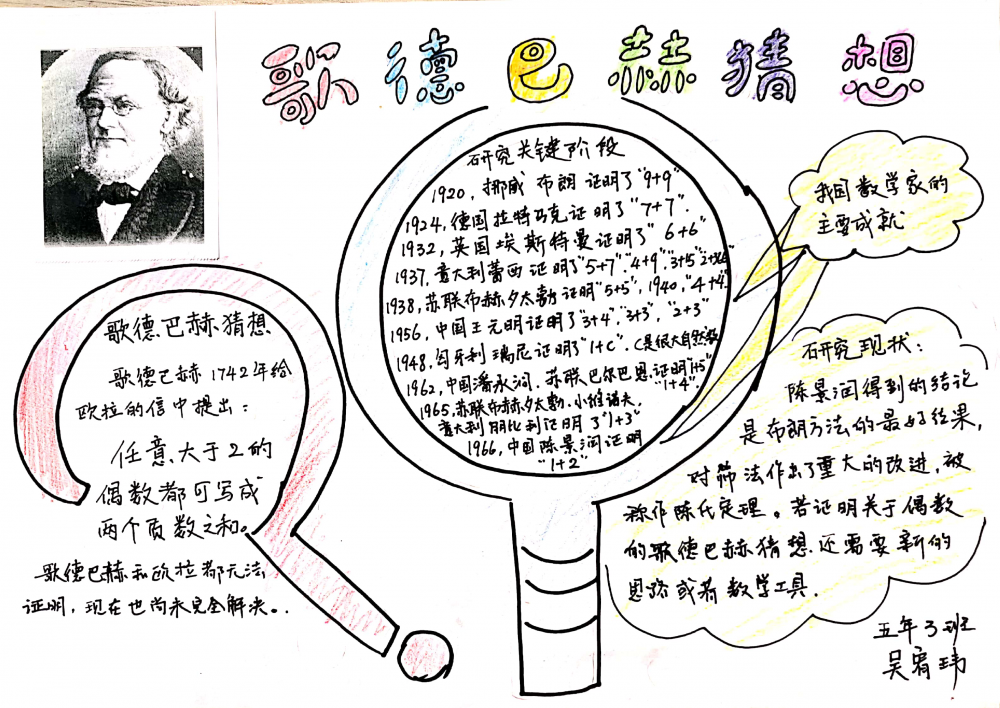 歌德巴赫猜想
研究关键阶段
1920,挪威 布朗 证明了"9+9"
1924,德国拉特马克证明了"7+7".
1932,英国埃斯特曼证明了"6+6"
1937,意大利蕾西证明了"5+7".4+9".3+15"
1938,苏联布赫夕太勃证明"5+5",1940,"4+4"
1956,中国王元明证明了"3+4".3+3","2+3"
1948,匈牙利瑞尼证明了"1+C".C是很大自然数
1962,中国潘承洞.苏联.巴尔巴恩.证明"1+5"
"1+4".
1965,苏联布赫夕太勃.小维诺夫,
意大利朋比利证明了"1+3"
1966,中国陈景润证明
"1+2"
我国数学家的
主要成就
歌德巴赫猜想
歌德巴赫1742年给
欧拉的信中提出:
任意大于2的
偶数都可写成
两个质数之和。
歌德巴赫和欧拉都无法
证明,现在也尚未完全解决。.
研究现状:
陈景润得到的结论
是布朗方法的最好结果,
对筛法作出了重大的改进,被
称作陈氏定理。若证明关于偶数
的歌德巴赫猜想.还需要新的
思路或者数学工具.
五年3班
吴宥玮